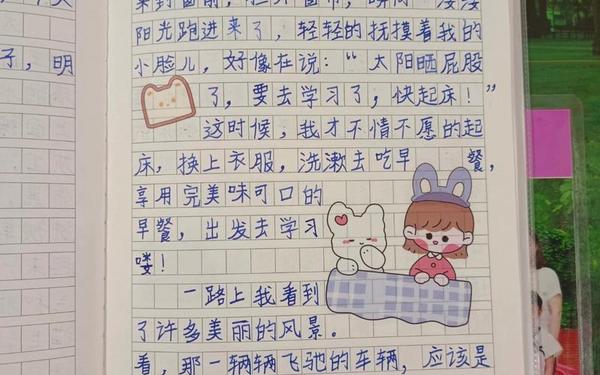 来到窗前,
阳光跑进来了，轻轻的抚摸着我的
小脸儿，好像在说：“太阳晒屁股
了，要去学习了，快起床！”
这时候，我才不情不愿的起
床，换上衣服，洗漱去吃早餐，
享用完美味可口的
早餐，出发去学习
喽！
一路上我看到
了许多美丽的风景。
看，那一辆辆飞驰的车辆，应该是
子，明